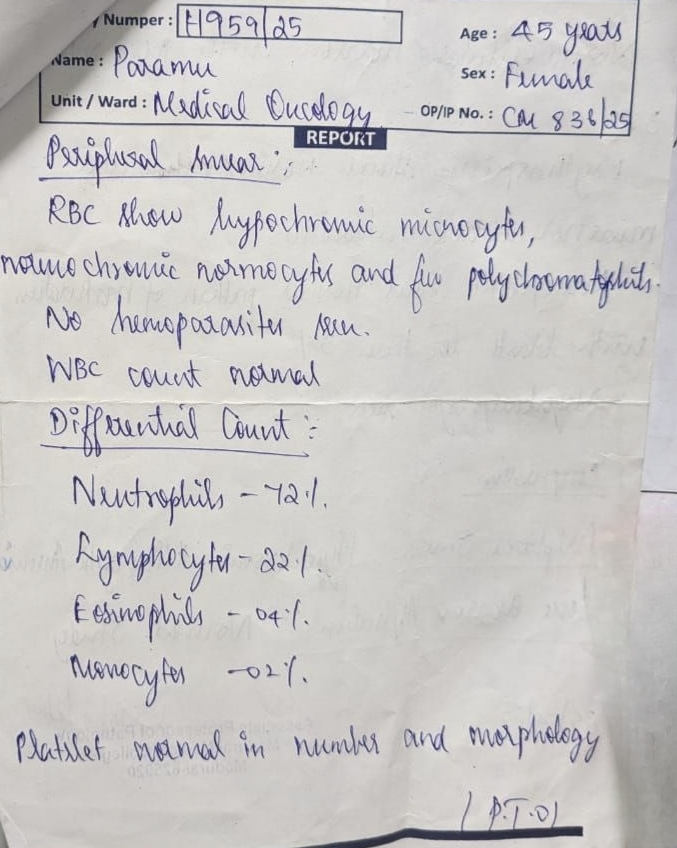 Number : H959/25
Age : 45 years
Name : Paramu
Sex : Female
Unit / Ward : Medical Oncology
OP/IP No. : CM 836/25
REPORT
Peripheral smear :
RBC show hypochromic microcytes,
normochromic normocytes and few polychromatophils.
No hemoparasites seen.
WBC count normal
Differential Count :-
Neutrophils - 72%.
Lymphocytes - 22%
Eosinophils - 04%.
Monocytes - 02%.
Platelet normal in number and morphology
/ P.T.O/